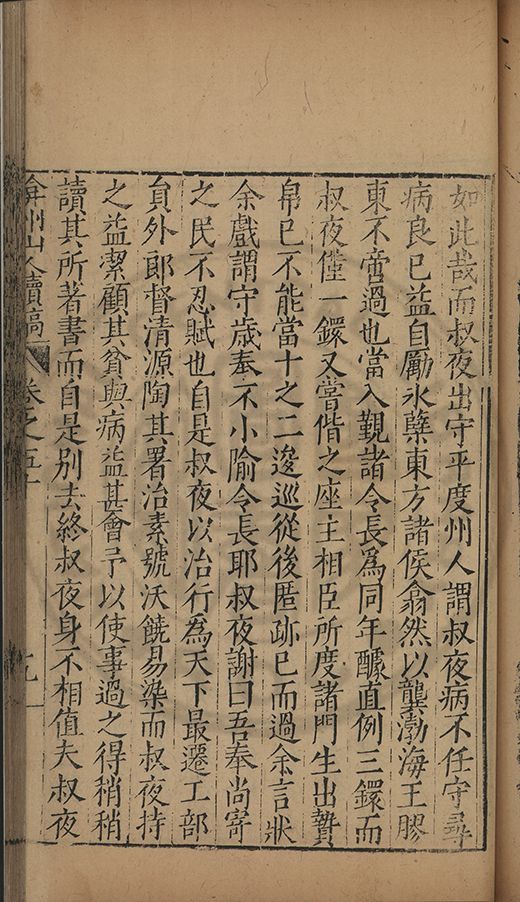 如此哉而叔夜出守平度州人謂叔夜病不任守尋
病良已益自勵氷櫱東方諸侯翕然以龔渤海王膠
東不啻過也當入覲諸令長爲同年醵直例三鐶而
叔夜僅一鐶又嘗偕之座主相臣所度諸門生出贄
帛已不能當十之二逡巡從後匿跡已而過余言狀
余戲謂守歳奉不小隃令長耶叔夜謝曰吾奉尚寄
之民不忍賦也自是叔夜以治行為天下最遷工部
貟外郎督清源陶其署治素號沃饒易染而叔夜持
之益潔顧其貧與病益甚會予以使事過之得稍稍
讀其所著書而自是别去終叔夜身不相值夫叔夜
弇州山人續稿 卷之五十 九